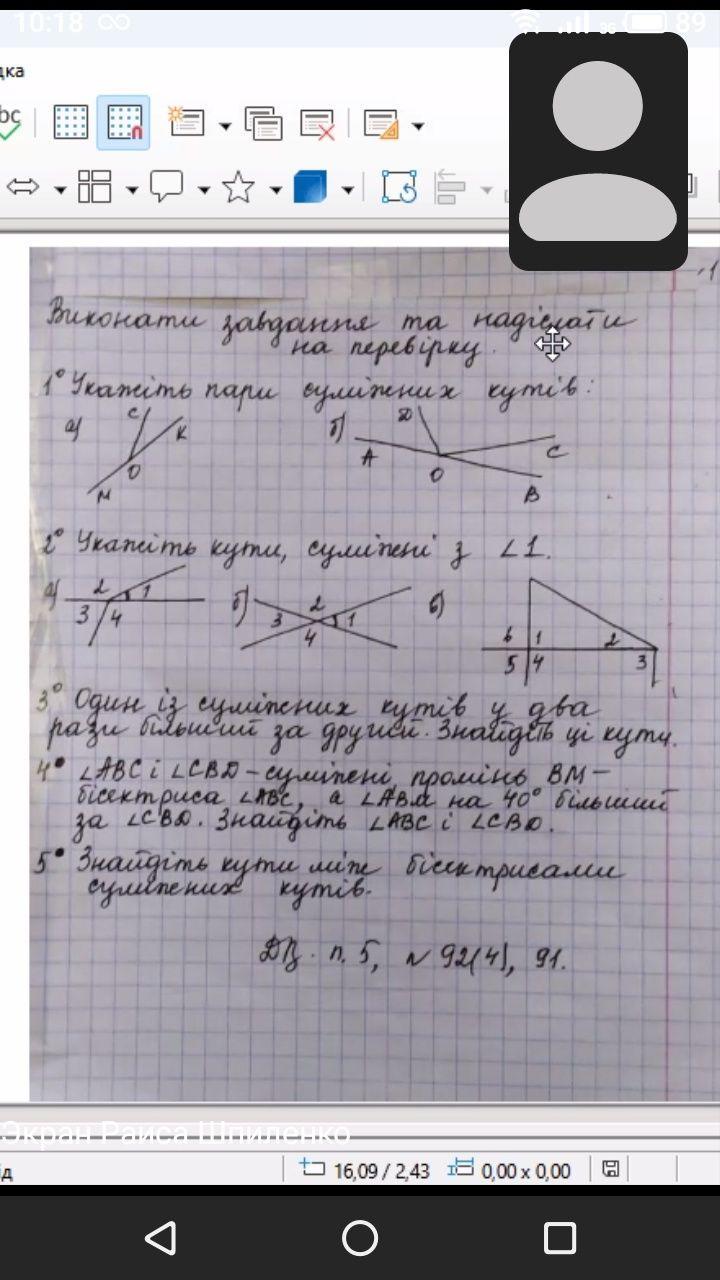 10:18
89
дка
Виконати завдання та надіслати
на перевірку.
1° Укажіть пари суміжних кутів:
а) С К О М
б) D A O C B
2° Укажіть кути, суміжні з ∠1.
а) 2 1 3 4
б) 2 3 1 4
в) 6 1 2 5 4 3
3° Один із суміжних кутів у два
рази більший за другий. Знайдіть ці кути.
4• ∠ABC і ∠CBD – суміжні, промінь BM –
бісектриса ∠ABC, а ∠ABM на 40° більший
за ∠CBD. Знайдіть ∠ABC і ∠CBD.
5• Знайдіть кути між бісектрисами
суміжних кутів.
ДЗ. п. 5, № 92(4), 91.
Экран Раиса Шпиленко
16,09 / 2,43
0,00 x 0,00